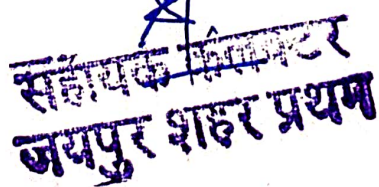 सहायक कलेक्टर
जयपुर शहर प्रथम